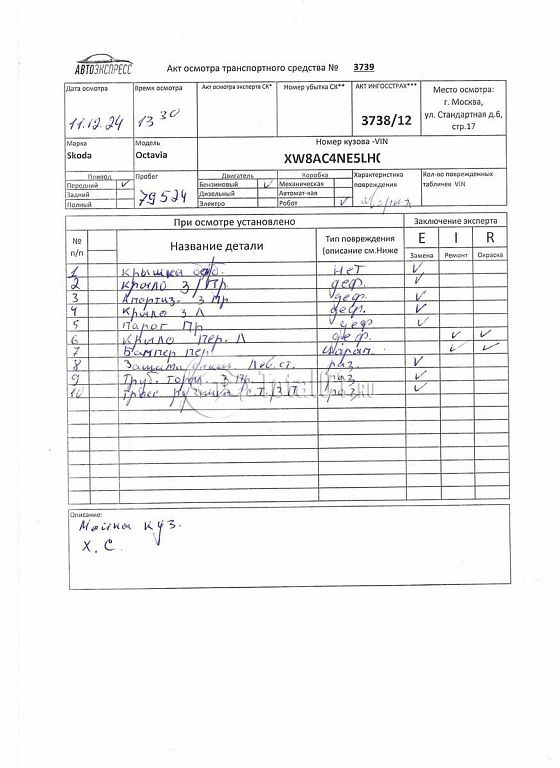 АВТОЭКСПРЕСС
Акт осмотра транспортного средства № 3739
Дата осмотра
11.12.24
Время осмотра
13 30
Акт осмотра эксперта СК*
Номер убытка СК**
АКТ ИНГОССТРАХ***
3738/12
Место осмотра:
г. Москва,
ул. Стандартная д.6,
стр.17
Марка
Skoda
Модель
Octavia
Номер кузова -VIN
XW8AC4NE5LH
Привод
Передний ✓
Задний
Полный
Пробег
79524
Двигатель
Бензиновый ✓
Дизельный
Электро
Коробка
Механическая
Автомат-кая
Робот ✓
Характеристика
повреждения
Кол-во поврежденных
табличек VIN
При осмотре установлено
Заключение эксперта
№
п/п
Название детали
Тип повреждения
(описание см.Ниже
E
I
R
Замена
Ремонт
Окраска
1 крышка нет ✓
2 крыло З/Пр. деф. ✓
3 Амортиз. З Пр. деф. ✓
4 крыло З Л деф. ✓
5 Парог Пр. деф ✓
6 крыло пер. Л деф. ✓ ✓
7 Бампер пер ✓ ✓
8 Защита Лев.ст. раз. ✓
9 Труб. торм. З Пр. ✓
10 Трос ✓
Описание:
Мойка куз.
Х.С.